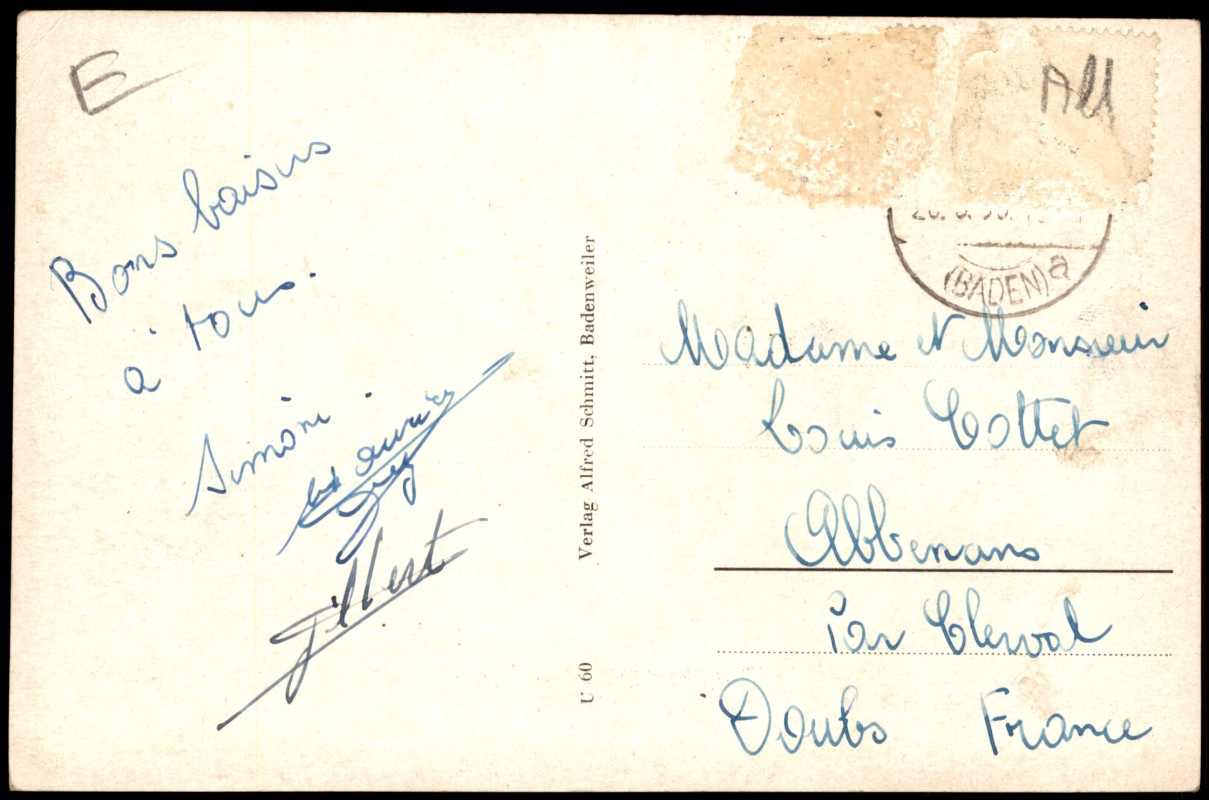 E
Bons baisers
à tous.
Simone
Maurice
Guy
Gilbert
Verlag Alfred Schmitt, Badenweiler
U 60
All
(BADEN) a
Madame et Monsieur
Louis Cottet
Abbenans
Par Clerval
Doubs France